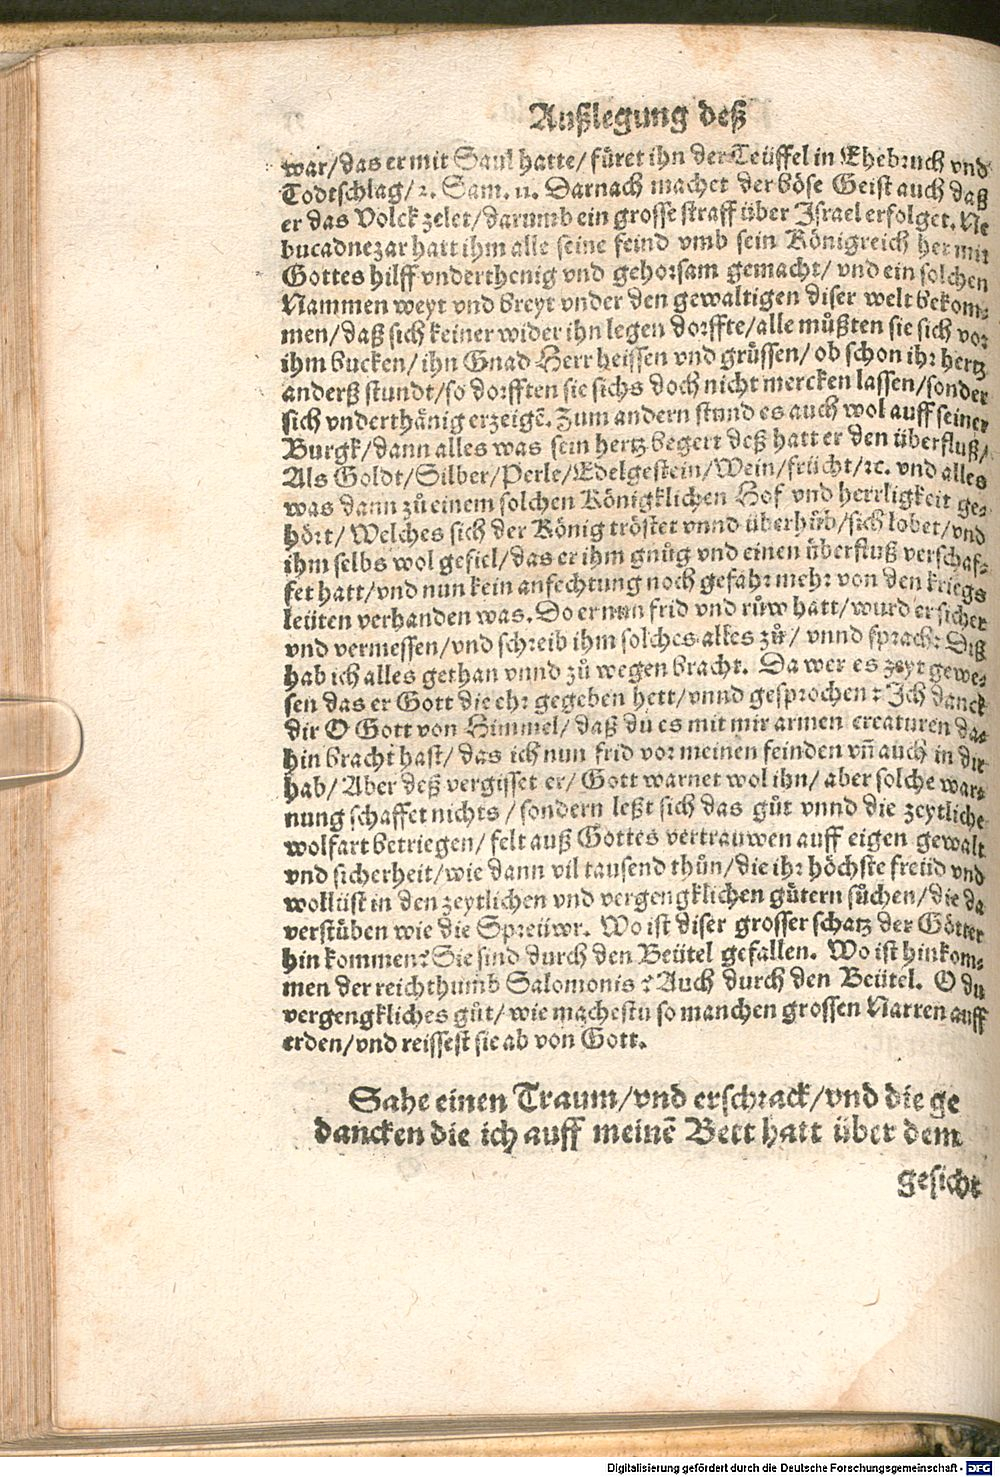 Außlegung deß
war/das er mit Saul hatte/ füret ihn der Teüffel in Ehebruch vnd
Todtschlag/2. Sam. 11. Darnach machet der böse Geist auch daß
er das Volck zelet/darumb ein grosse straff über Israel erfolget. Ne
bucadnezar hatt ihm alle seine feind vmb sein Königreich her mit
Gottes hilff vnderthenig vnd gehorsam gemacht/ vnd ein solchen
Nammen weyt vnd breyt vnder den gewaltigen diser welt bekom-
men/daß sich keiner wider ihn legen dorffte/alle můßten sie sich vor
ihm bucken/ihn Gnad Herr heissen vnd grüssen/ ob schon ihr hertz
anderß stundt/so dorfften sie sichs doch nicht mercken lassen/sonder
sich vnderthänig erzeigē. Zum andern stund es auch wol auff seiner
Burgk/dann alles was sein hertz begert deß hatt er den überfluß/
Als Goldt/Silber/Perle/Edelgestein/Wein/frücht/ꝛc. vnd alles
was dann zů einem solchen Königklichen Hof vnd herrligkeit ge-
hört/ Welches sich der König tröstet vnnd überhůb/sich lobet/vnd
ihm selbs wol gefiel/das er ihm gnůg vnd einen überfluß verschaf-
fet hatt/vnd nun kein anfechtung noch gefahr mehr von den kriegs
leüten verhanden was. Do er nun frid vnd růw hatt/wurd er sicher
vnd vermessen/vnd schreib ihm solches alles zů/ vnnd sprach: Diß
hab ich alles gethan vnnd zů wegen bracht. Da wer es zeyt gewe-
sen das er Gott die ehr gegeben hett/vnnd gesprochen: Ich danck
dir O Gott von Himmel/ daß du es mit mir armen creaturen da
hin bracht hast/ das ich nun frid vor meinen feinden vñ auch in dir
hab/ Aber deß vergisset er/ Gott warnet wol ihn/ aber solche war-
nung schaffet nichts/sondern leßt sich das gůt vnnd die zeytliche
wolfart betriegen/ felt auß Gottes vertrauwen auff eigen gewalt
vnd sicherheit/wie dann vil tausend thůn/die ihr höchste freüd vnd
wollüst in den zeytlichen vnd vergengklichen gütern sůchen/die da
verstüben wie die Spreüwr. Wo ist diser grosser schatz der Götter
hin kommen? Sie sind durch den Beütel gefallen. Wo ist hinkom-
men der reichthumb Salomonis? Auch durch den Beütel. O du
vergengkliches gůt/ wie machestu so manchen grossen Narren auff
erden/vnd reissest sie ab von Gott.
Sahe einen Traum/vnd erschrack/vnd die ge
dancken die ich auff meinē Bett hatt über dem
gesicht
Digitalisierung gefördert durch die Deutsche Forschungsgemeinschaft - DFG